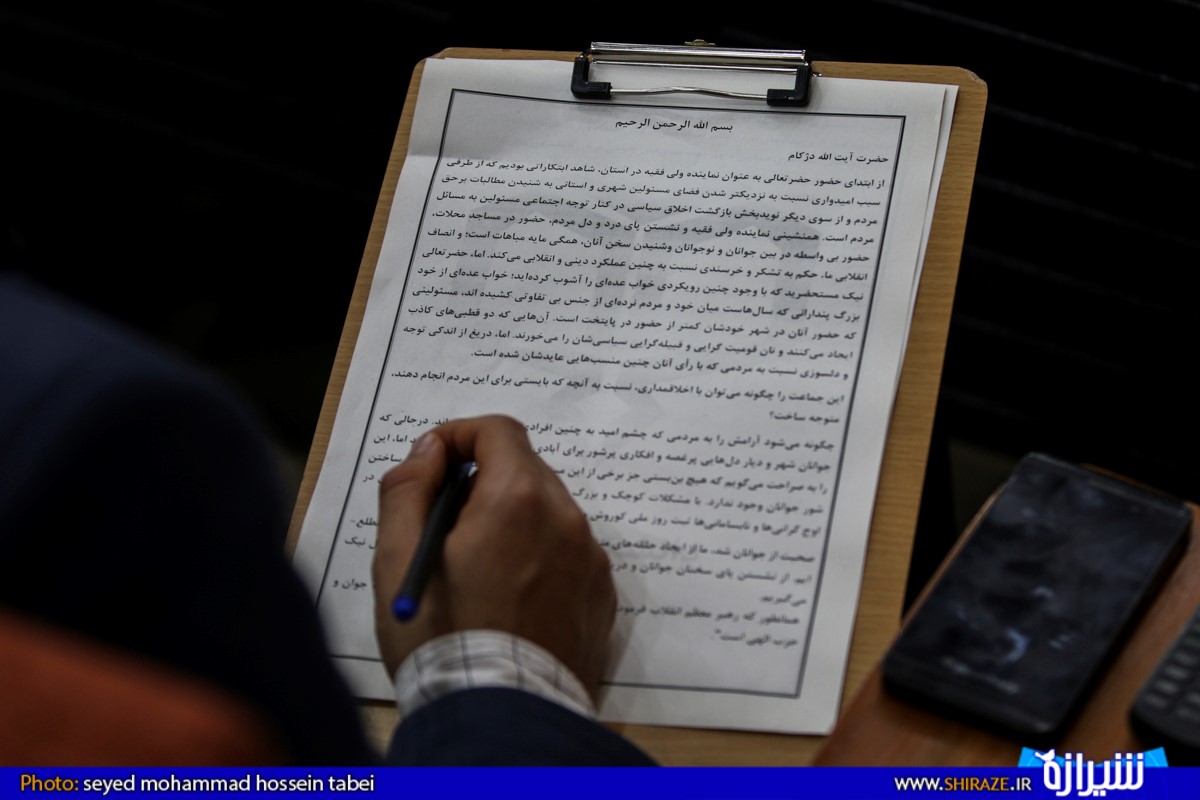 بسم الله الرحمن الرحیم
حضرت آیت الله دژکام
از ابتدای حضور حضرتعالی به عنوان نماینده ولی فقیه در استان، شاهد ابتکاراتی بودیم که از طرفی
سبب امیدواری نسبت به نزدیکتر شدن فضای مسئولین شهری و استانی به شنیدن مطالبات برحق
مردم و از سوی دیگر نویدبخش بازگشت اخلاق سیاسی در کنار توجه اجتماعی مسئولین به مسائل
مردم است. همنشینی نماینده ولی فقیه و نشستن پای درد و دل مردم، حضور در مساجد محلات،
حضور بی واسطه در بین جوانان و نوجوانان وشنیدن سخن آنان، همگی مایه مباهات است؛ و انصاف
انقلابی ما، حکم به تشکر و خرسندی نسبت به چنین عملکرد دینی و انقلابی می‌کند. اما، حضرتعالی
نیک مستحضرید که با وجود چنین رویکردی خواب عده‌ای را آشوب کرده‌اید؛ خواب عده‌ای از خود
بزرگ پندارانی که سال‌هاست میان خود و مردم نرده‌ای از جنس بی تفاوتی کشیده اند، مسئولیتی
که حضور آنان در شهر خودشان کمتر از حضور در پایتخت است. آن‌هایی که دو قطبی‌های کاذب
ایجاد می‌کنند و نان قومیت گرایی و قبیله‌گرایی سیاسی‌شان را می‌خورند. اما، دریغ از اندکی توجه
و دلسوزی نسبت به مردمی که با رأی آنان چنین منسب‌هایی عایدشان شده است.
این جماعت را چگونه می‌توان با اخلاقمداری، نسبت به آنچه که بایستی برای این مردم انجام دهند،
متوجه ساخت؟
چگونه می‌شود آرامش را به مردمی که چشم امید به چنین افرادی اند. درحالی که
جوانان شهر و دیار دل‌هایی پرغصه و افکاری پرشور برای آبادی اما، این
را به صراحت می‌گویم که هیچ بن‌بستی جز برخی از این ساختن
شور جوانان وجود ندارد. با مشکلات کوچک و بزرگ در
اوج گرانی‌ها و نابسامانی‌ها ثبت روز ملی کوروش
صحبت از جوانان شد، ما از ایجاد حلقه‌های مطلع-
ایم. از نشستن پای سخنان جوانان و نیک
می‌گیریم.
همانطور که رهبر معظم انقلاب جوان و
حزب الهی است".
Photo: seyed mohammad hossein tabei
WWW.SHIRAZE.IR
شیرازه